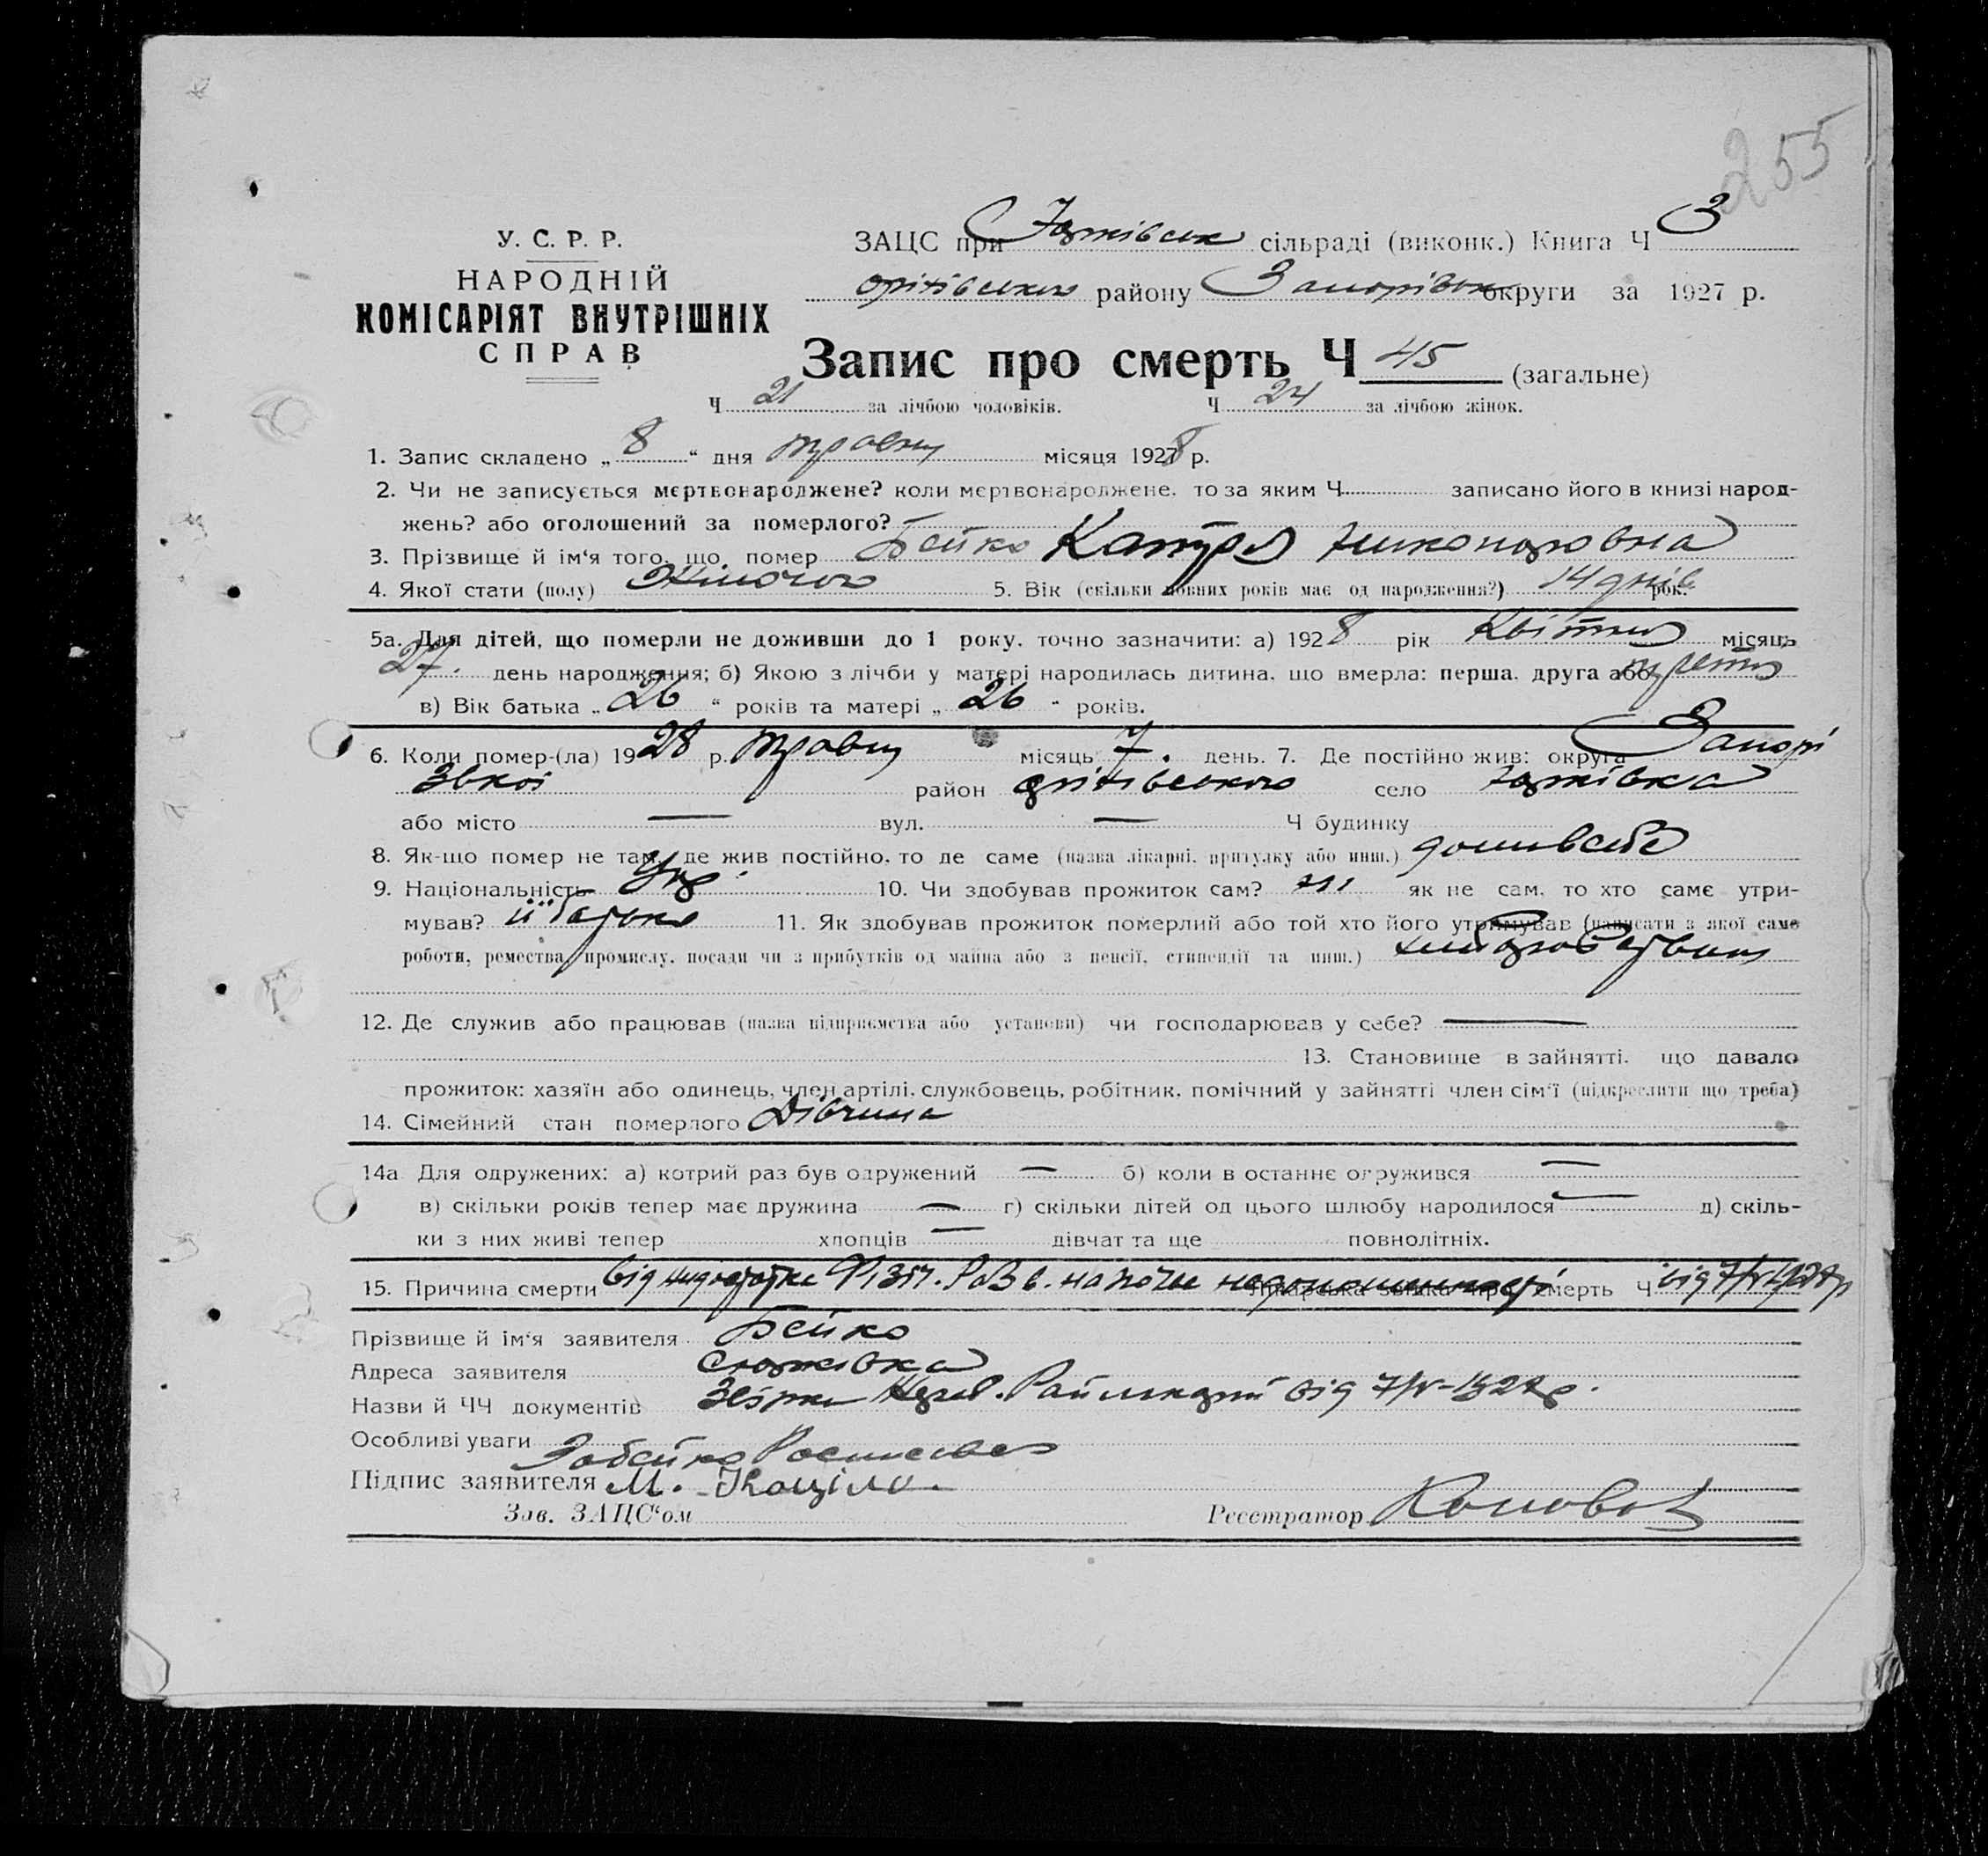 255
У. С. Р. Р.
НАРОДНІЙ
КОМІСАРІЯТ ВНУТРІШНІХ
СПРАВ
ЗАЦС при сільраді (виконк.) Книга Ч 3
району округи за 1927 р.
Запис про смерть Ч 45 (загальне)
Ч 21 за лічбою чоловіків. Ч 24 за лічбою жінок.
1. Запис складено „ 8 “ дня травня місяця 1928 р.
2. Чи не записується мертвонароджене? коли мертвонароджене, то за яким Ч записано його в книзі народ-
жень? або оголошений за померлого? —
3. Прізвище й ім‘я того, що помер Бейко Катря Никоноровна
4. Якої стати (полу) Жіночого 5. Вік (скільки повних років має од народження?) 14 днів рок.
5а. Для дітей, що померли не доживши до 1 року, точно зазначити: а) 1928 рік Квітня місяць
27. день народження; б) Якою з лічби у матері народилась дитина, що вмерла: перша, друга або третя
в) Вік батька „ 26 “ років та матері „ 26 “ років.
6. Коли помер-(ла) 1928 р. травня місяць 7. день. 7. Де постійно жив: округа Запорі
район село
або місто — вул. — Ч будинку
8. Як-що помер не там, де жив постійно, то де саме (назва лікарні, притулку або инш.)
9. Національність Укр. 10. Чи здобував прожиток сам? ні як не сам, то хто саме утри-
мував? її батько 11. Як здобував прожиток померлий або той хто його утримував (написати з якої саме
роботи, ремества, промислу, посади чи з прибутків од майна або з пенсії, стипендії та инш.)
12. Де служив або працював (назва підприємства або установи) чи господарював у себе? —
13. Становище в зайнятті, що давало
прожиток: хазяїн або одинець, член артілі, службовець, робітник, помічний у зайнятті член сім‘ї (підкреслити що треба)
14. Сімейний стан померлого Дівчина
14а Для одружених: а) котрий раз був одружений — б) коли в останнє одружився —
в) скільки років тепер має дружина — г) скільки дітей од цього шлюбу народилося — д) скіль-
ки з них живі тепер хлопців — дівчат та ще повнолітніх.
15. Причина смерти смерть Ч
Прізвище й ім‘я заявителя Бейко
Адреса заявителя
Назви й ЧЧ документів
Особливі уваги
Підпис заявителя
Зав. ЗАЦС‘ом Реєстратор